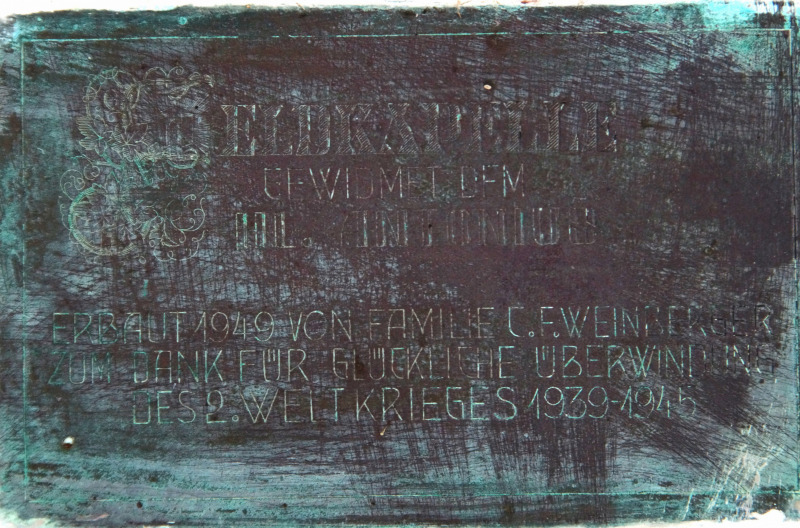 FELDKAPELLE
GEWIDMET DEM
HL. ANTONIUS
ERBAUT 1949 VON FAMILIE C.F.WEINBERGER
ZUM DANK FÜR GLÜCKLICHE ÜBERWINDUNG
DES 2. WELTKRIEGES 1939-1945